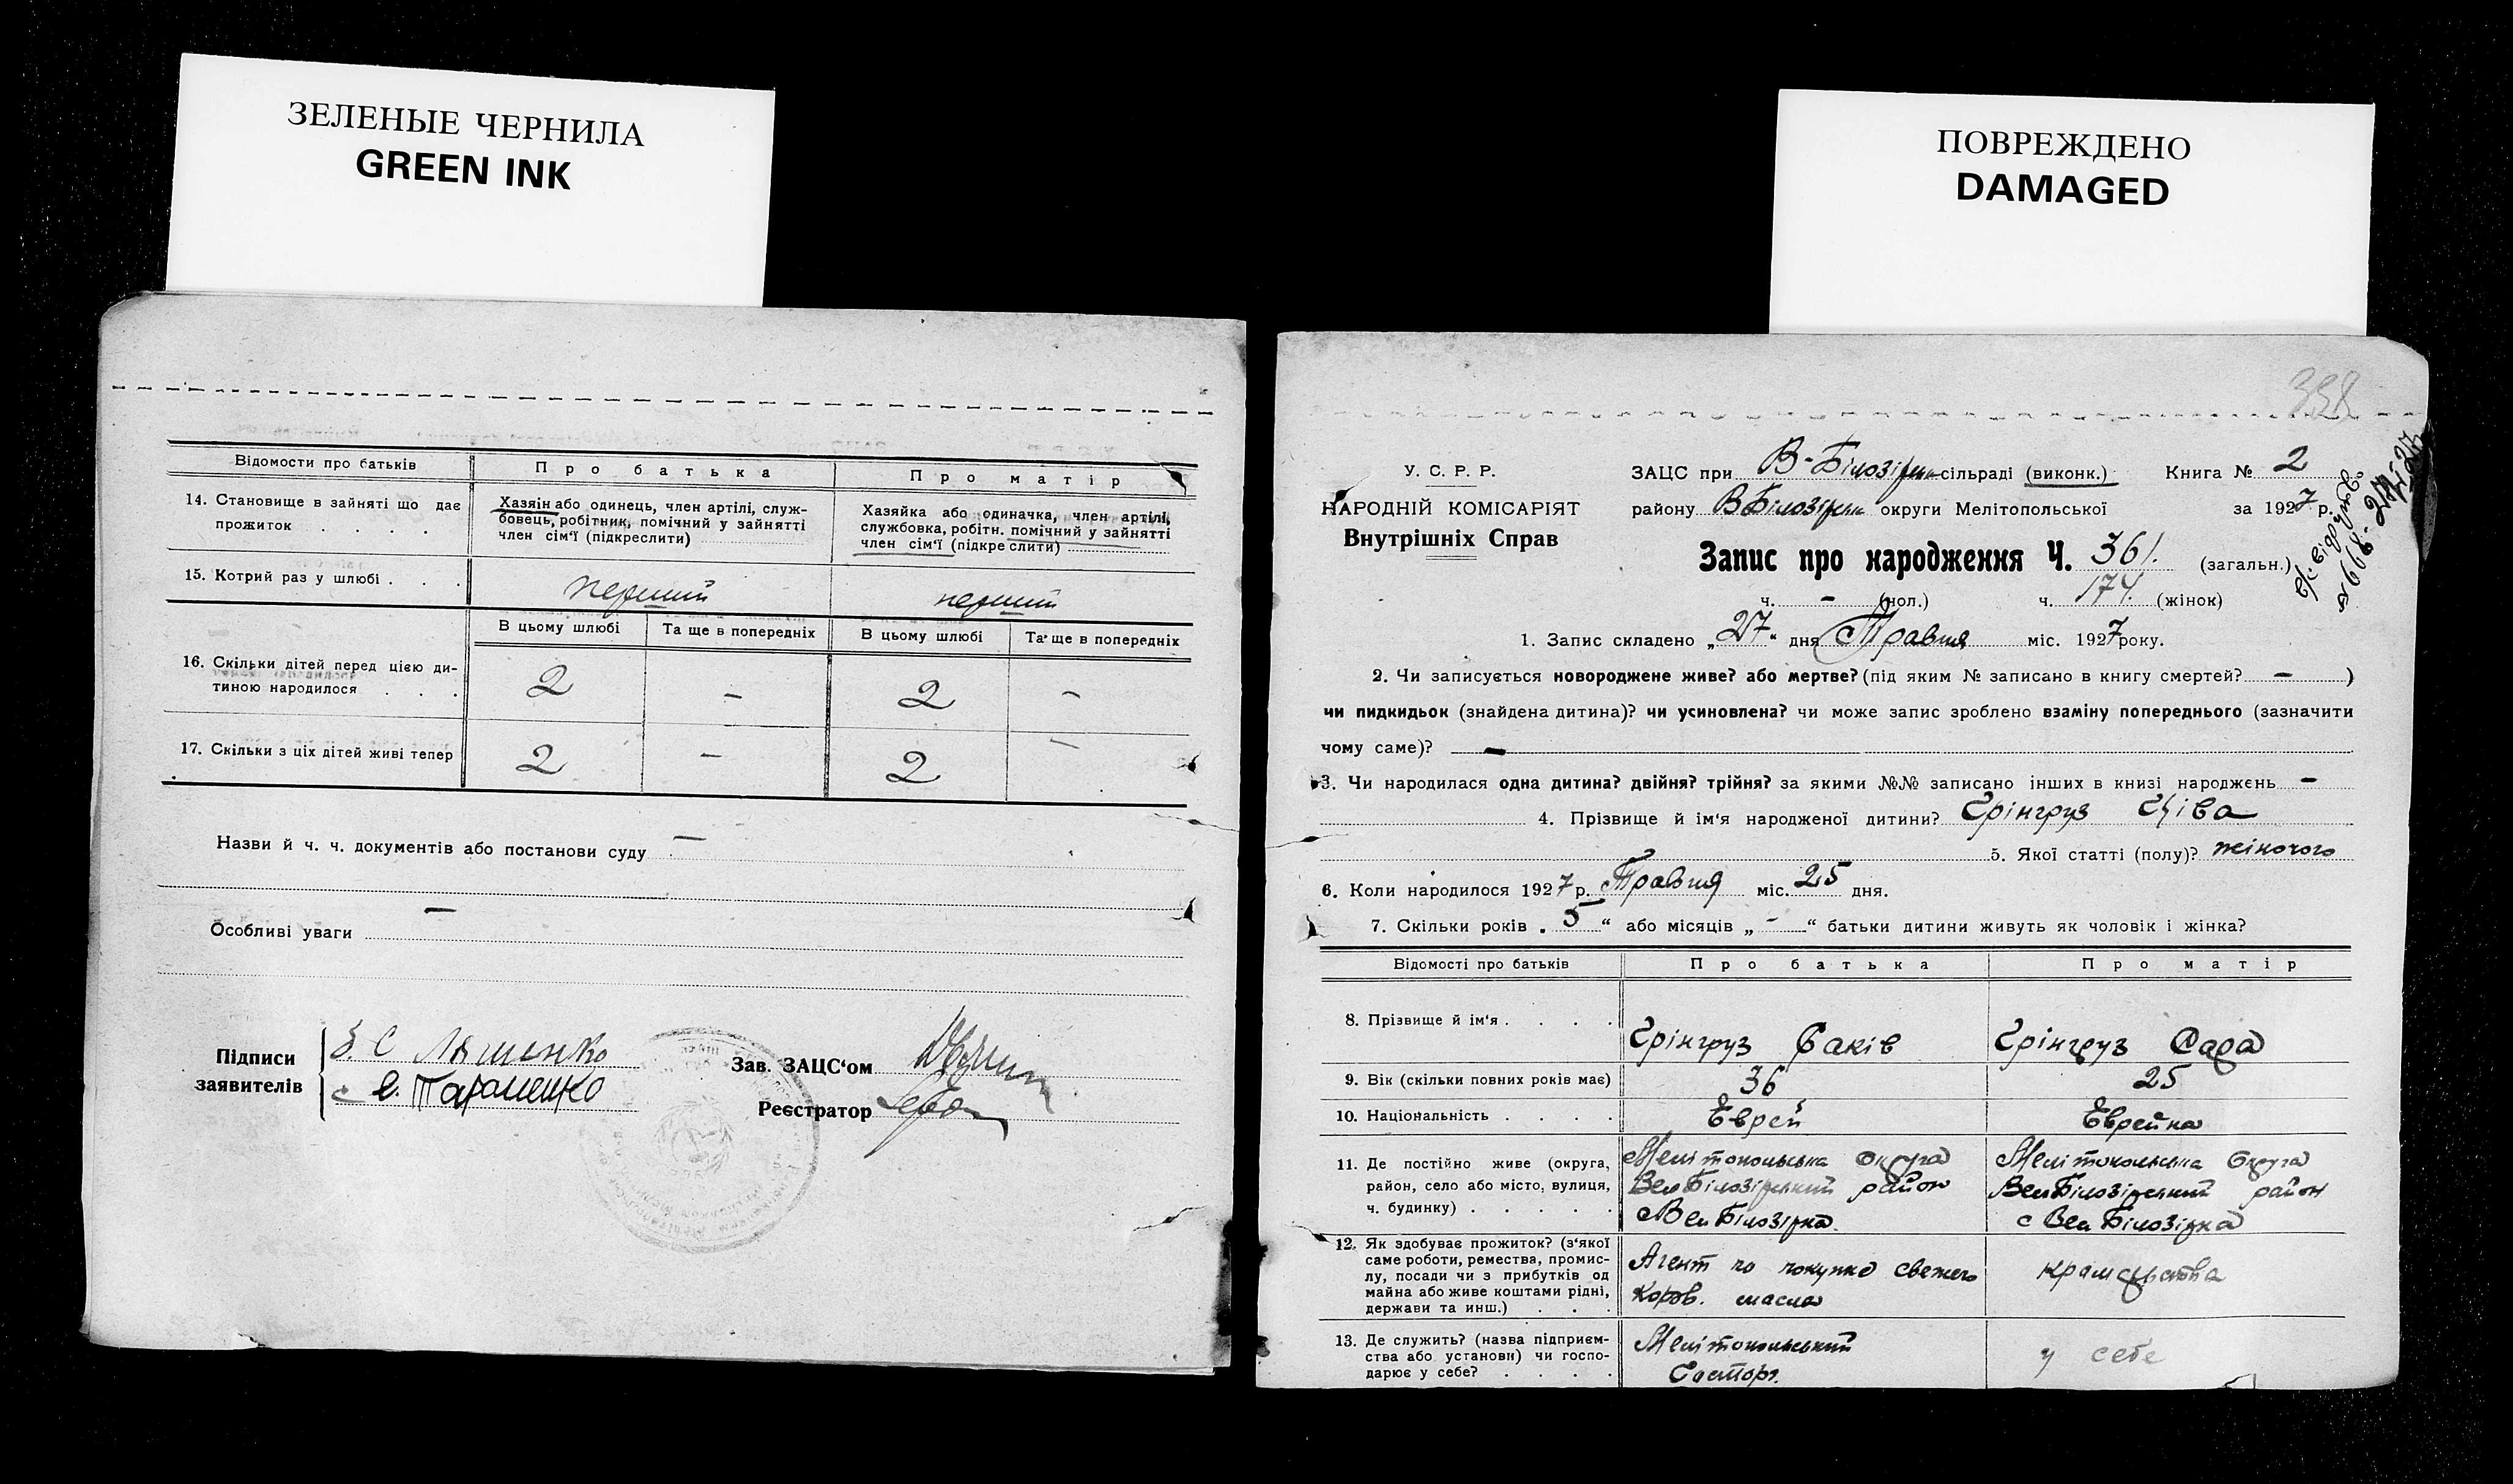 ЗЕЛЕНЫЕ ЧЕРНИЛА
GREEN INK
ПОВРЕЖДЕНО
DAMAGED
Відомости про батьків
Про батька
Про матір
14. Становище в зайняті що дає
прожиток . . . .
Хазяін або одинець, член артілі, служ-
бовець, робітник, помічний у зайнятті
член сім'ї (підкреслити)
Хазяйка або одиначка, член артілі,
службовка, робітн. помічний у зайнятті
член сім'ї (підкреслити)
15. Котрий раз у шлюбі . . .
перший
перший
В цьому шлюбі
Та ще в попередніх
В цьому шлюбі
Та ще в попередніх
16. Скільки дітей перед цією ди-
тиною народилося . . .
2 – 2 –
17. Скільки з ціх дітей живі тепер
2 – 2 –
Назви й ч. ч. документів або постанови суду –
Особливі уваги –
Підписи
заявителів
Ляшенко
Зав. ЗАЦС'ом
Реєстратор
358
У. С. Р. Р.
НАРОДНІЙ КОМІСАРІЯТ
Внутрішніх Справ
ЗАЦС при В-Білозірськ сільраді (виконк.) Книга № 2
району ВБілозірськ округи Мелітопольської за 1927 р.
Запис про народження Ч. 361. (загальн.)
ч. – (чол.) ч. 174. (жінок)
1. Запис складено „27“ дня Травня міс. 1927 року.
2. Чи записується новороджене живе? або мертве? (під яким № записано в книгу смертей? – )
чи пидкидьок (знайдена дитина)? чи усиновлена? чи може запис зроблено взаміну попереднього (зазначити
чому саме)? –
3. Чи народилася одна дитина? двійня? трійня? за якими №№ записано інших в книзі народжень –
4. Прізвище й ім'я народженої дитини? Грінгруз Ціва
5. Якої статті (полу)? жіночого
6. Коли народилося 1927 р. Травня міс. 25 дня.
7. Скільки років „ 5 “ або місяців „ - “ батьки дитини живуть як чоловік і жінка?
Відомості про батьків
Про батька
Про матір
8. Прізвище й ім'я . . . .
Грінгруз Яаків
Грінгруз Сара
9. Вік (скільки повних років має)
36
25
10. Національність . . . .
Єврей
Єврейка
11. Де постійно живе (округа,
район, село або місто, вулиця,
ч. будинку) . . . . .
Мелітопольська округа
Вел Білозірський район
с Вел Білозірка
Мелітопольська округа
Вел Білозірський район
с Вел Білозірка
12. Як здобуває прожиток? (з'якої
саме роботи, ремества, промис-
лу, посади чи з прибутків од
майна або живе коштами рідні,
держави та инш.) . . .
Агент по покупке свежего
коров. масла
крамарства
13. Де служить? (назва підприєм-
ства або установи) чи госпо-
дарює у себе? . . . .
Мелітопольський
Госторг.
у себе